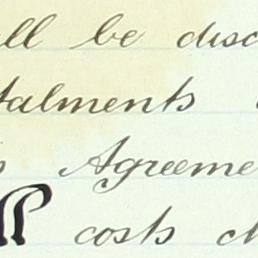 all be disc
talments
Agreeme
costs ch